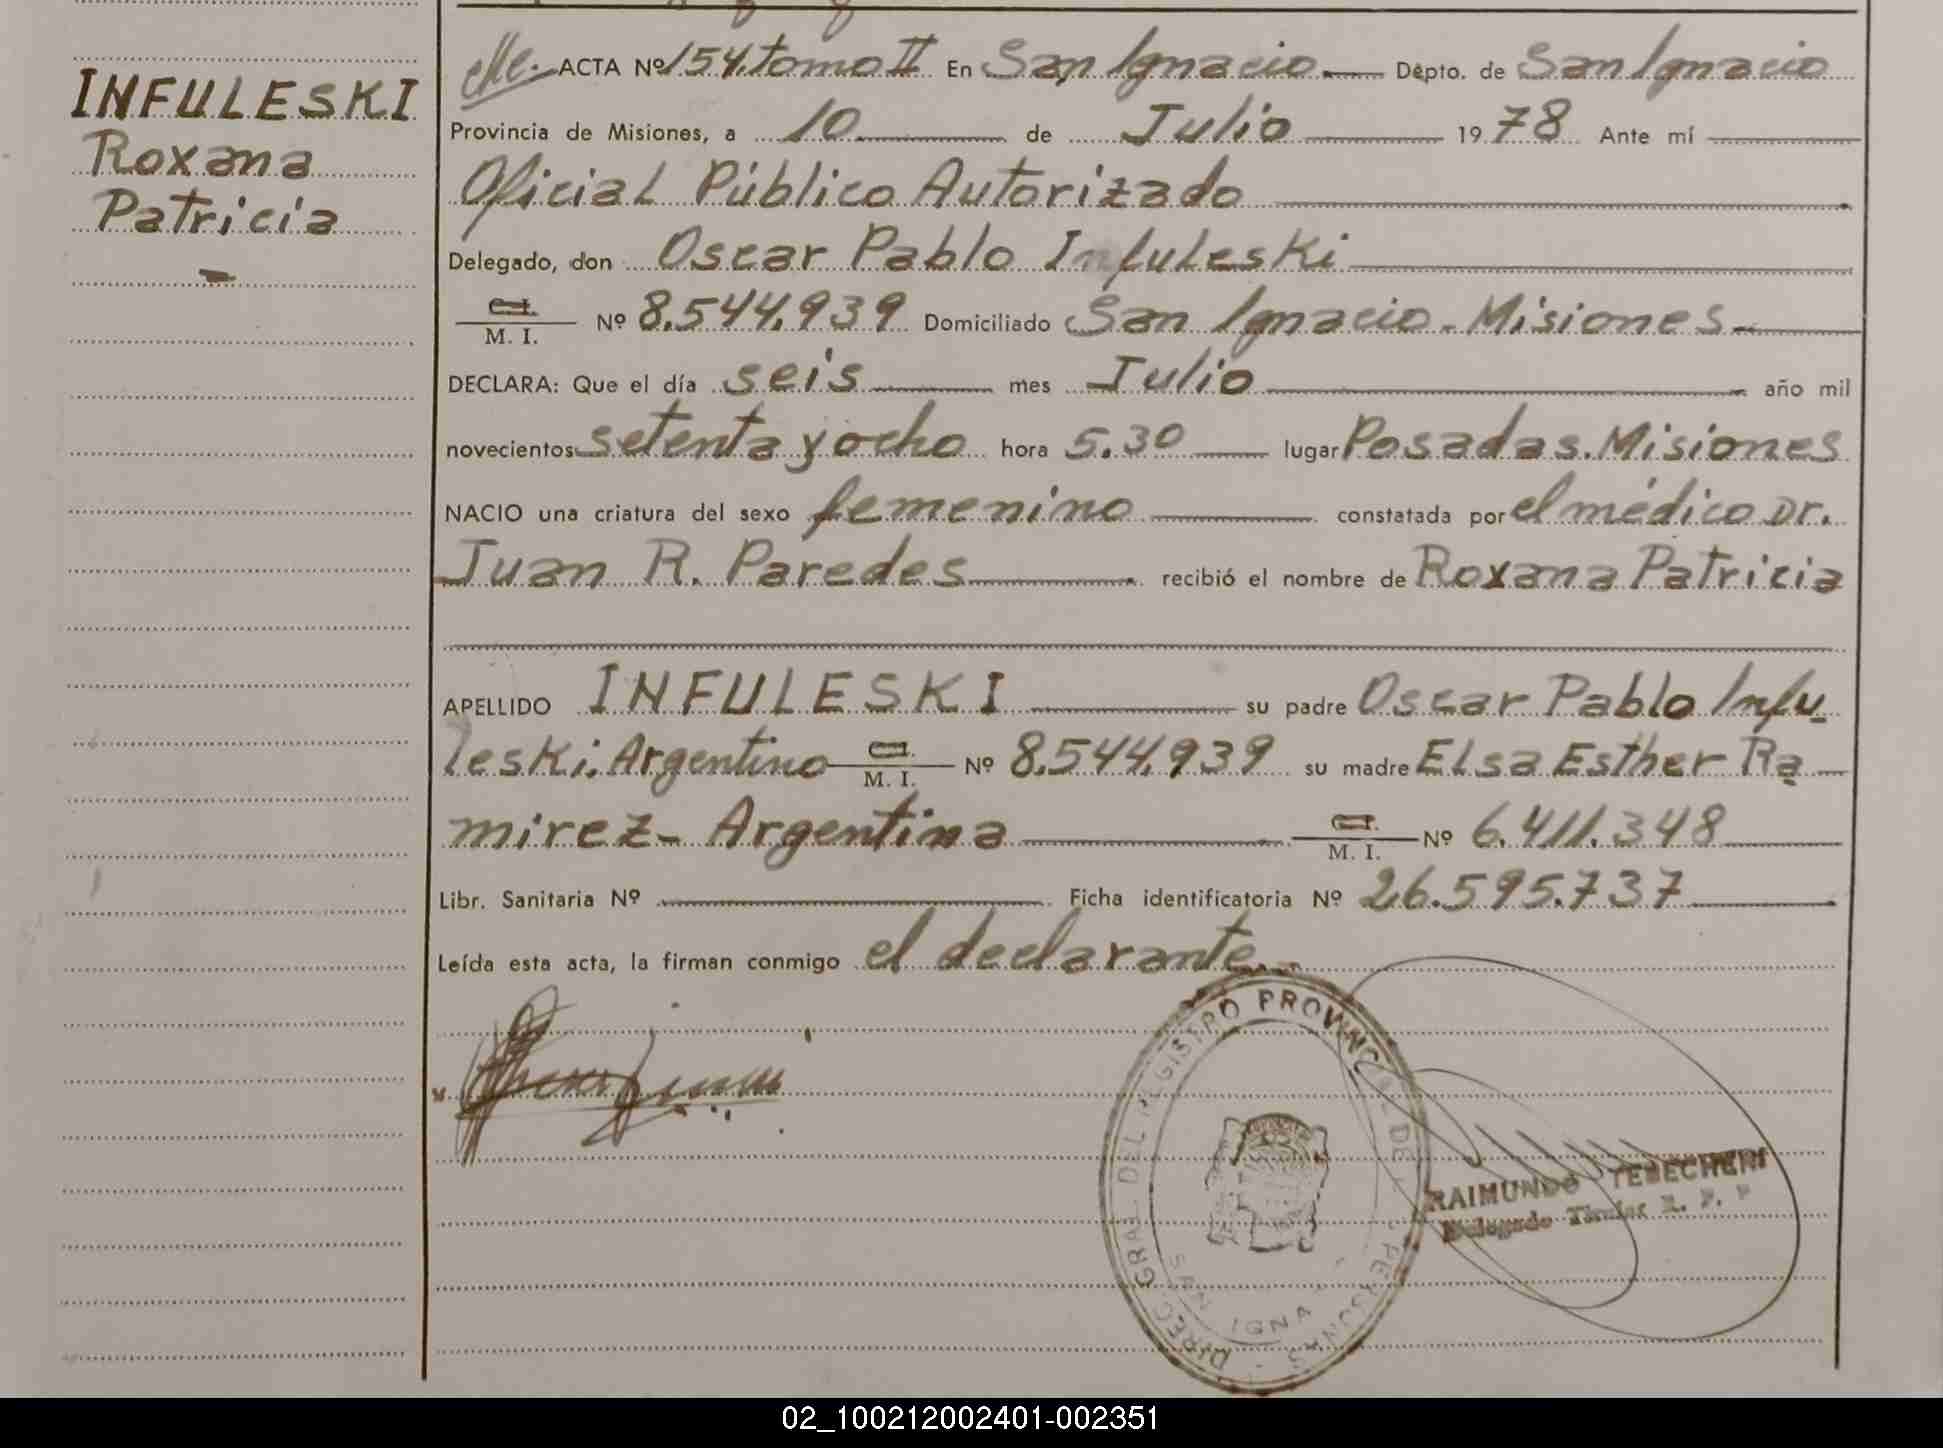 INFULESKI
Roxana
Patricia
ACTA Nº 154. tomo II En San Ignacio. Dépto. de San Ignacio
Provincia de Misiones, a 10 de Julio 1978 Ante mí
Oficial Público Autorizado
Delegado, don Oscar Pablo Infuleski
C.I. M. I. Nº 8.544.939 Domiciliado San Ignacio - Misiones
DECLARA: Que el día seis mes Julio año mil
novecientos setenta y ocho hora 5.30 lugar Posadas. Misiones
NACIO una criatura del sexo femenino constatada por el médico Dr.
Juan R. Paredes recibió el nombre de Roxana Patricia
APELLIDO INFULESKI su padre Oscar Pablo Infu-
leski. Argentino C.I. M. I. Nº 8.544.939 su madre Elsa Esther Ra-
mirez - Argentina C.I. M. I. Nº 6.411.348
Libr. Sanitaria Nº Ficha identificatoria Nº 26.595.737
Leída esta acta, la firman conmigo el declarante.
DIREC. GRAL. DEL REGISTRO PROVINCIAL DE PERSONAS
SAN IGNA
RAIMUNDO TEBECHERI
Delegado Titular R. P. P
02_100212002401-002351